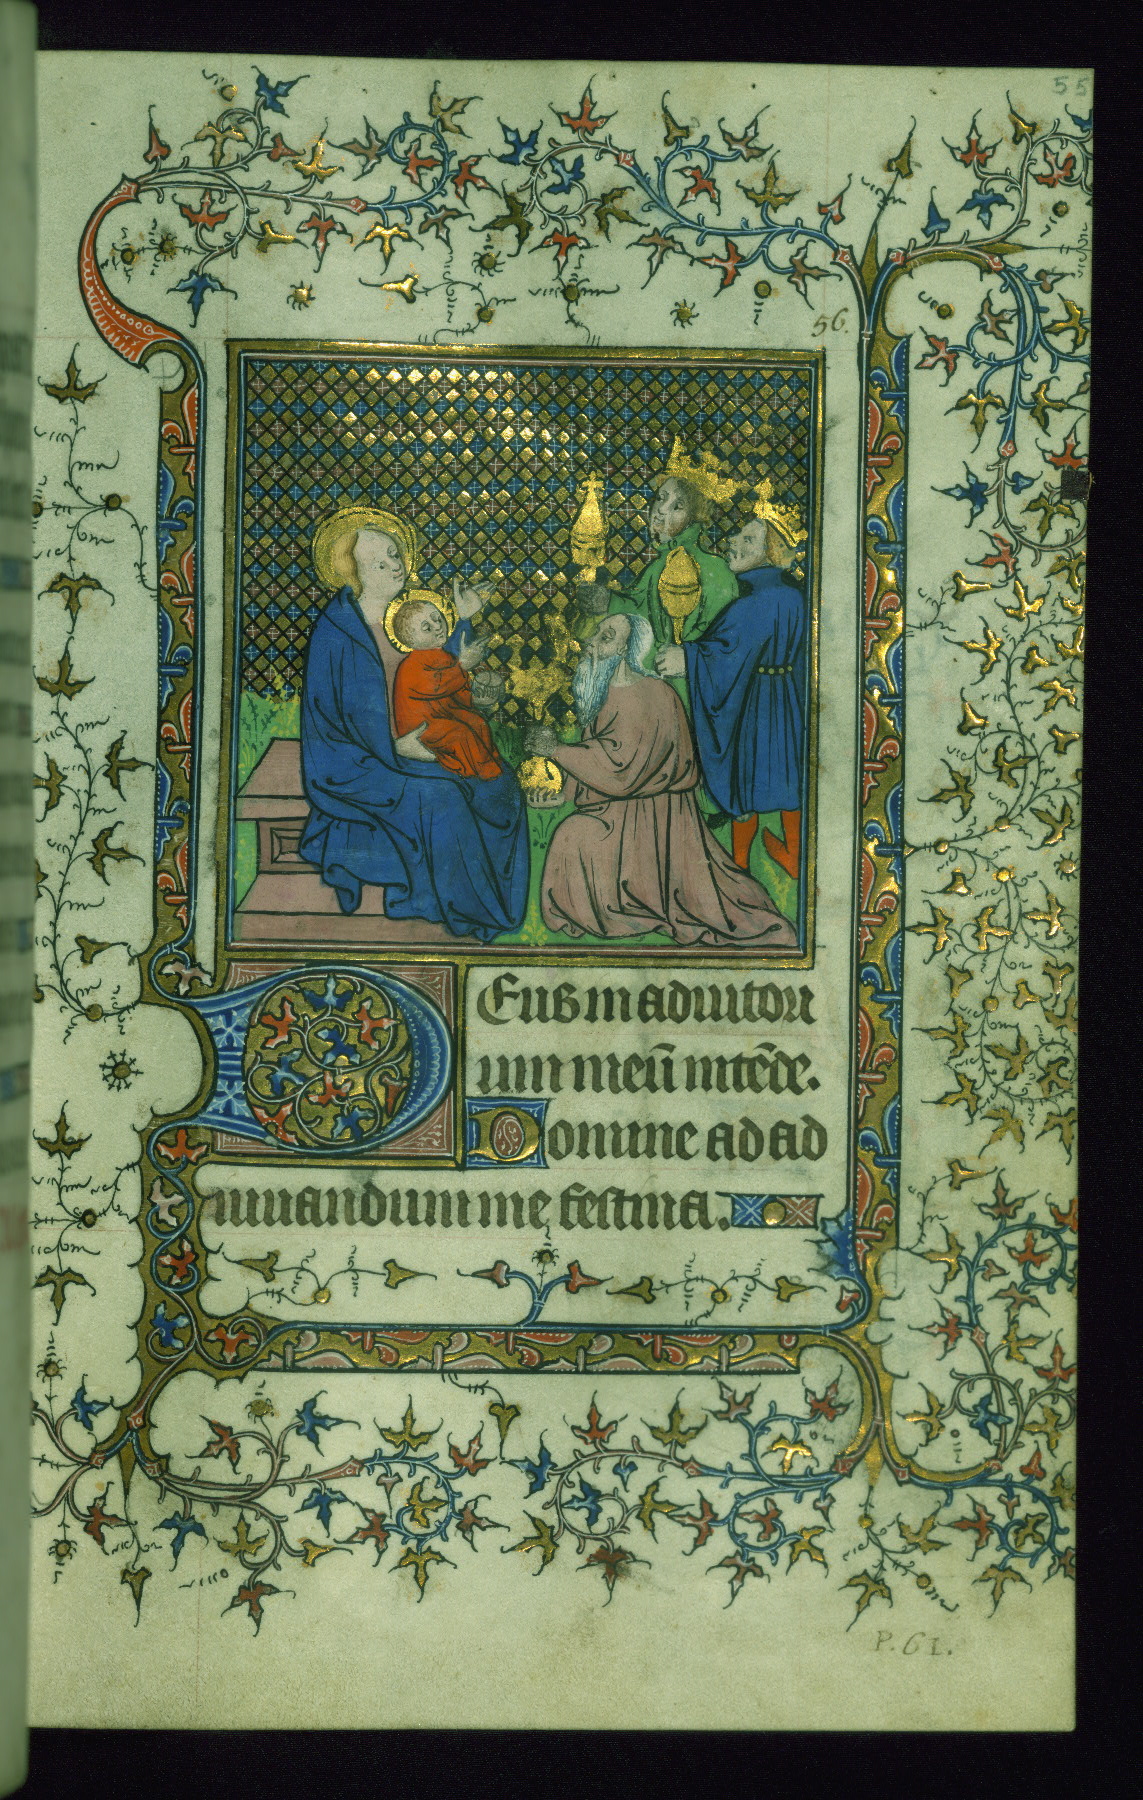 55
56.
Deus in adiutori
um meū intēde.
Domine ad ad
iuuandum me festina.
P. 61.